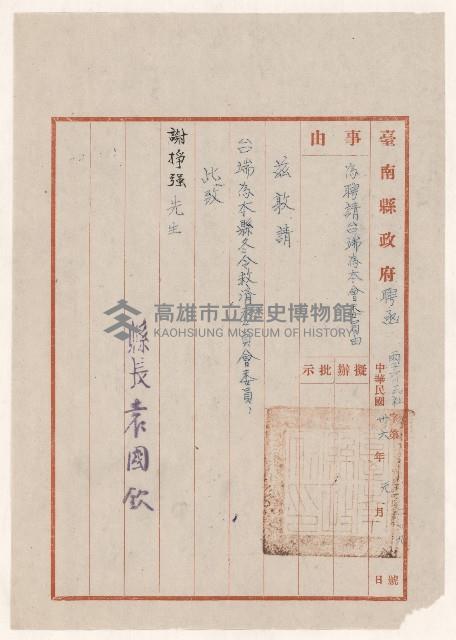 臺南縣政府聘函
中華民國卅六年元月日
字第號
事由
為聘請台端為本會委員由
擬辦批示
茲敦請
台端為本縣冬令救濟委員會委員
此致
謝掙强先生
縣長袁國欽
高雄市立歷史博物館
KAOHSIUNG MUSEUM OF HISTORY